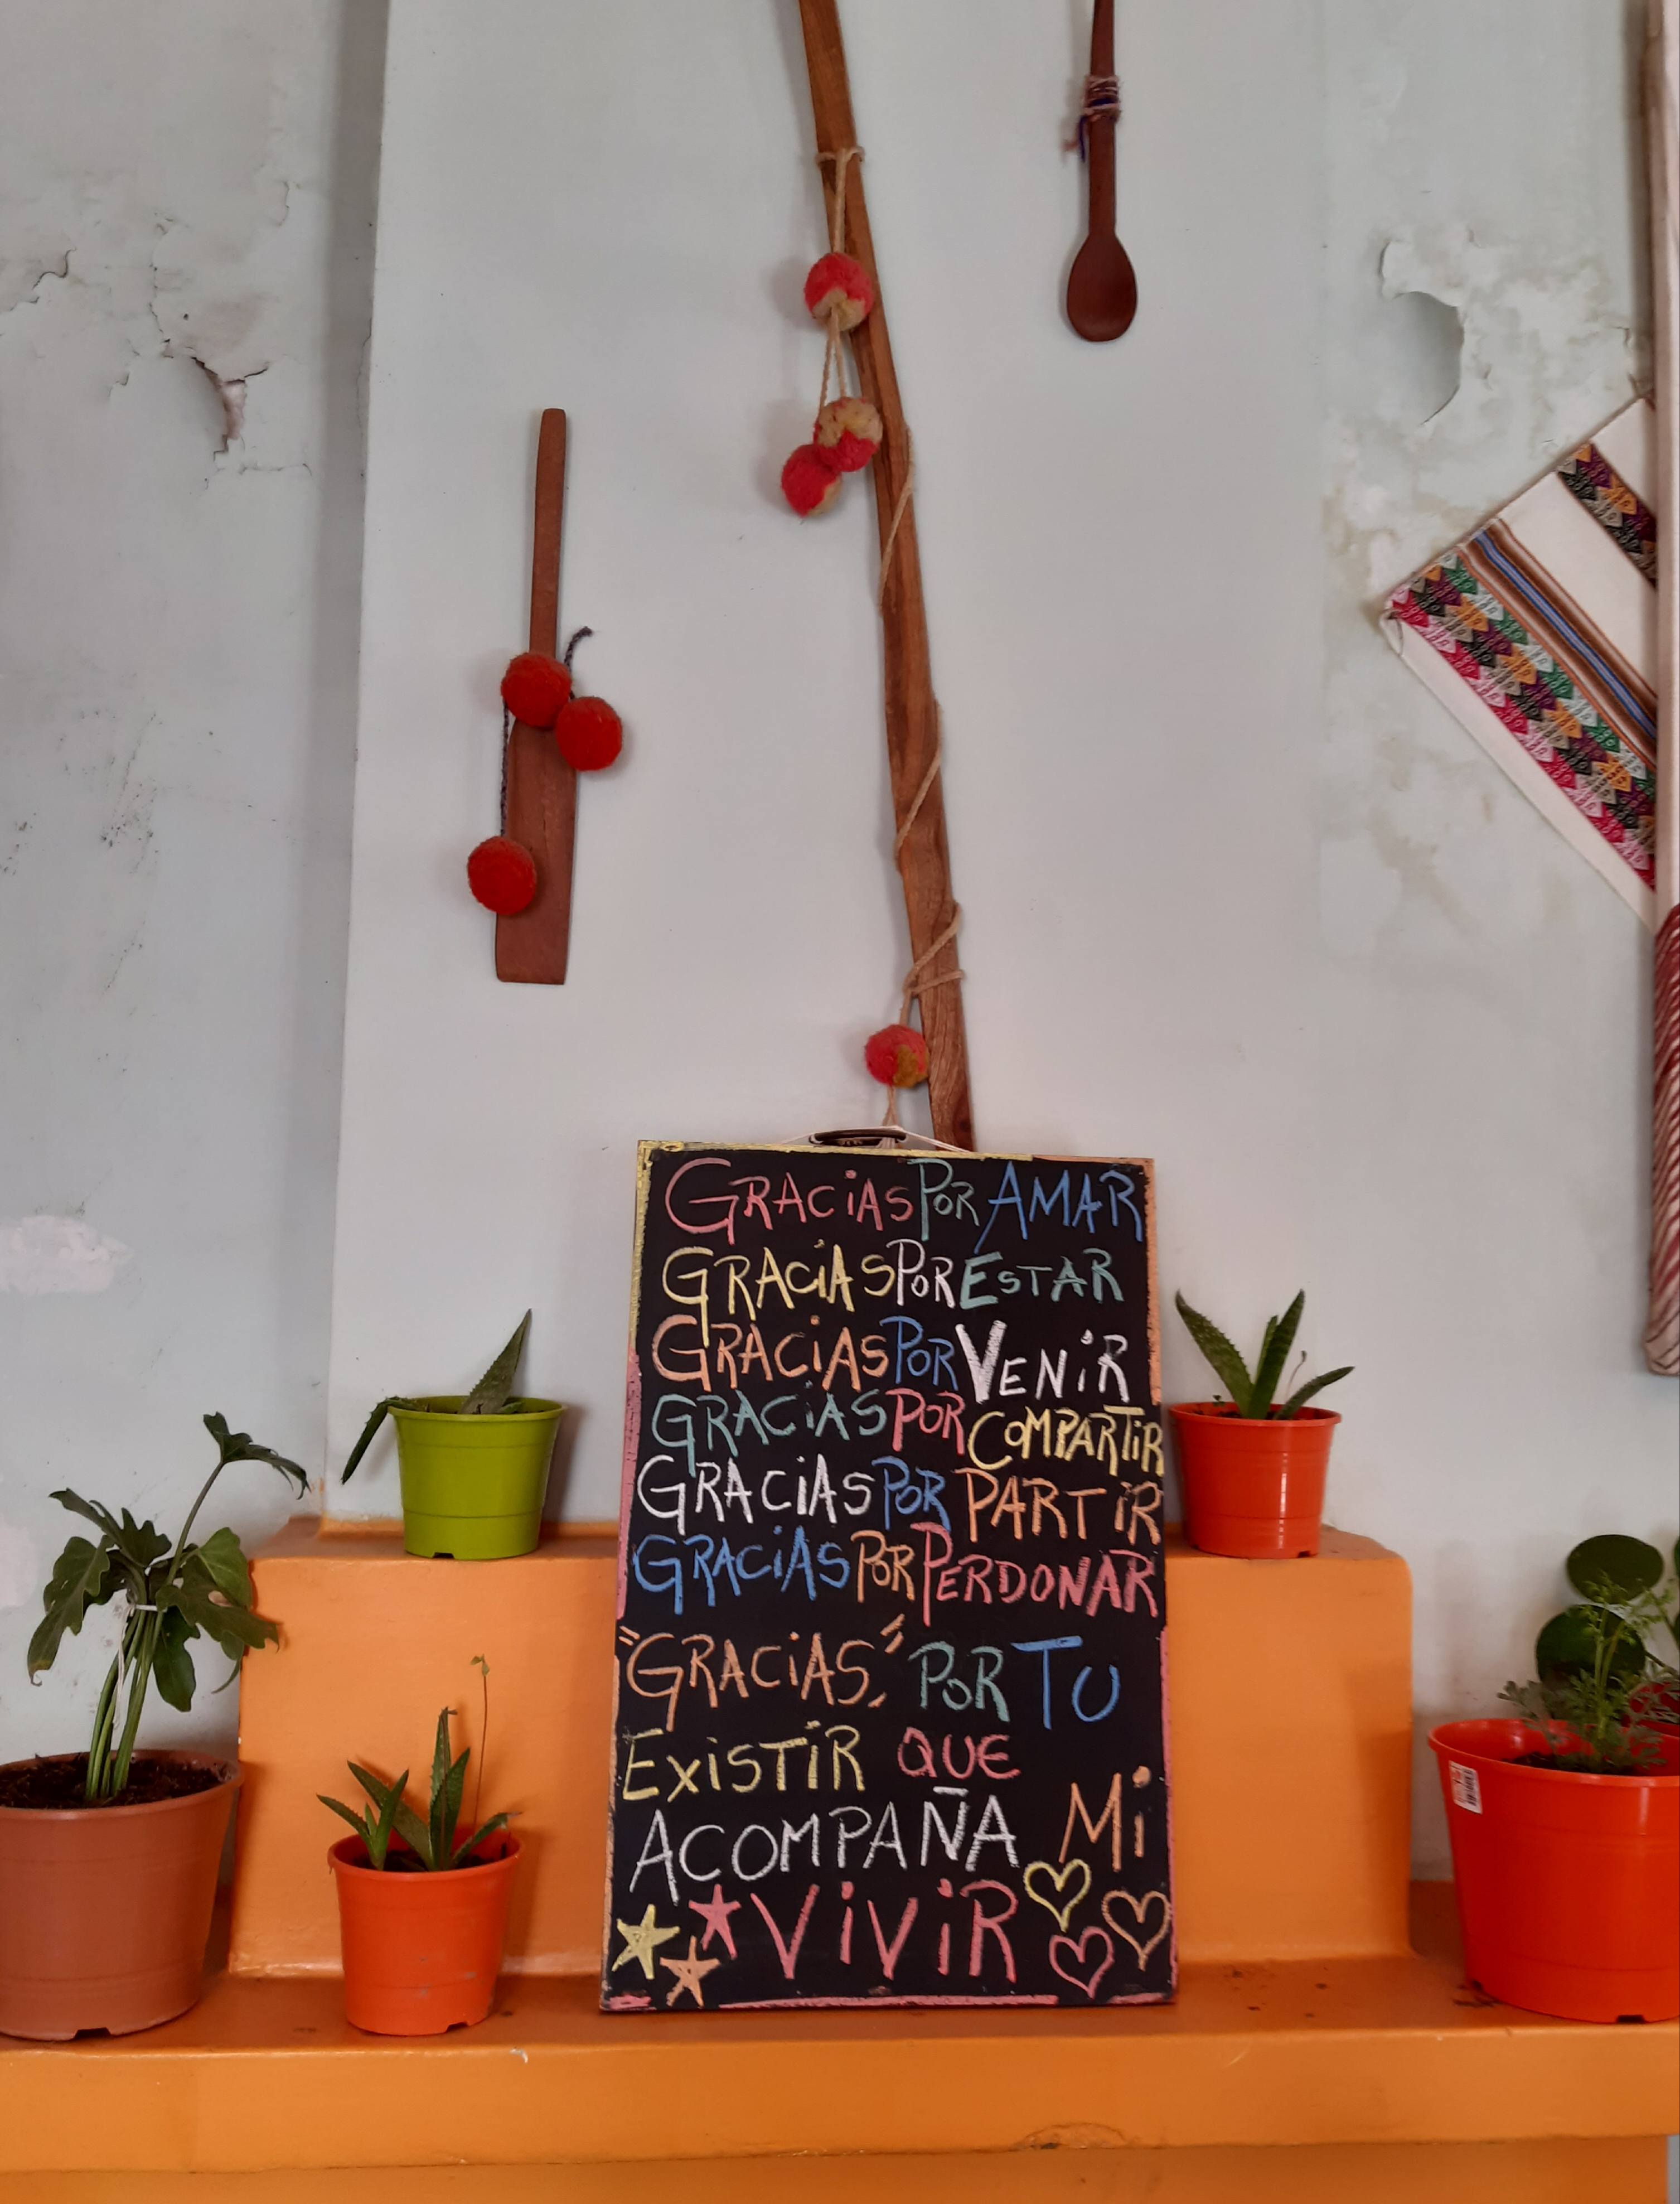 GRACiAS POR AMAR
GRACiAS POR ESTAR
GRACiAS POR VENiR
GRACiAS POR COMPARTiR
GRACiAS POR PARTiR
GRACiAS POR PERDONAR
"GRACiAS," POR TU
EXiSTiR QUE
ACOMPAÑA Mi
ViViR